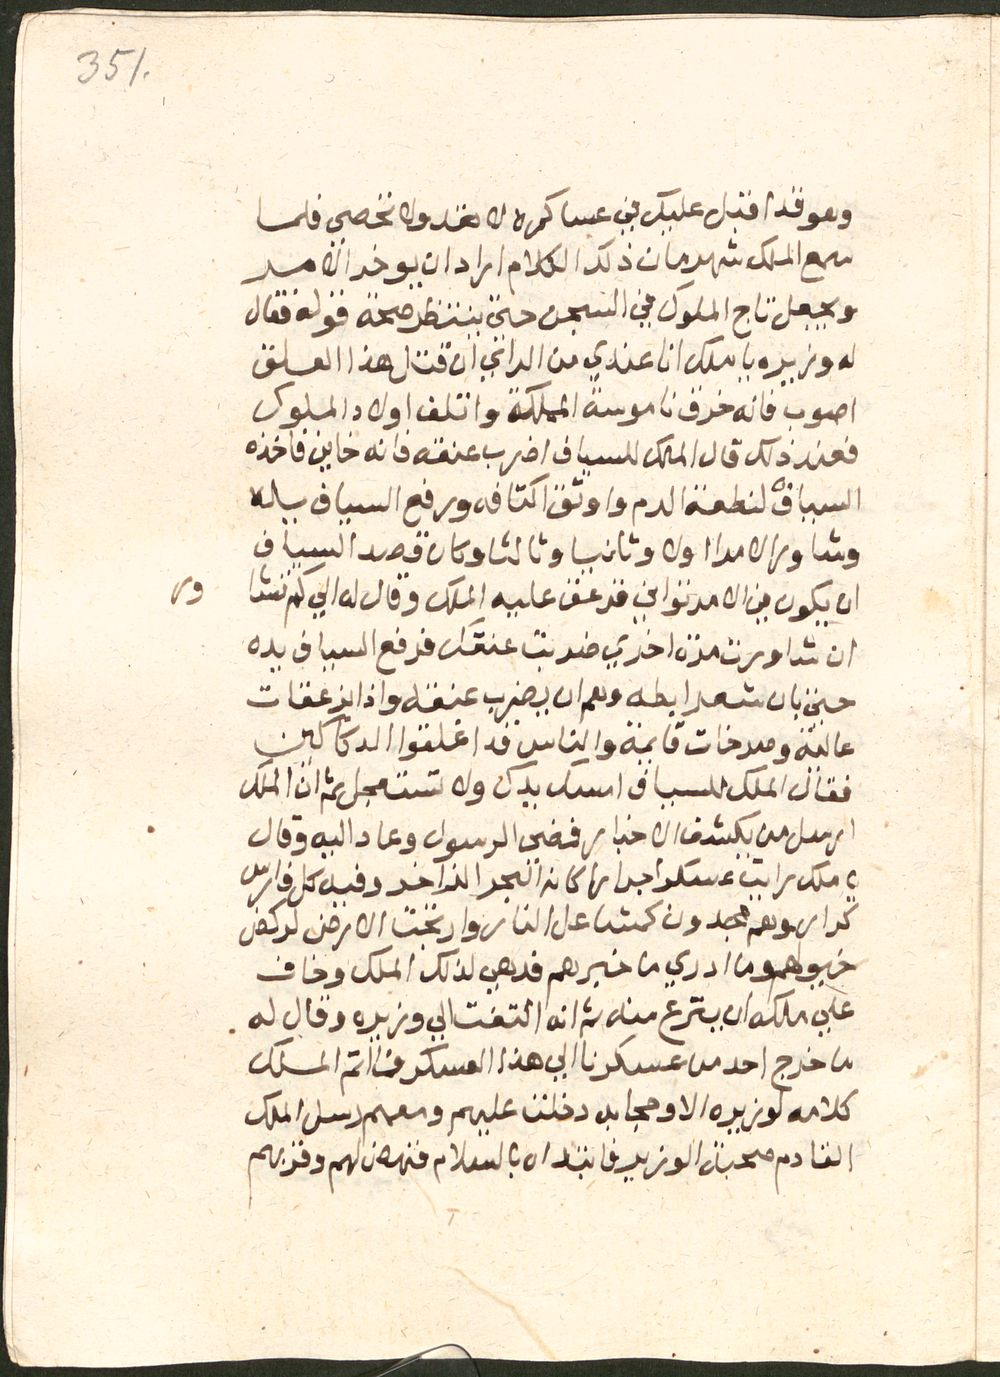 351.
وهو قد اقبل عليك في عساكره لا تعد ولا تحصى فلما
سمع الملك شهرمان ذلك الكلام اراد ان يوخر الامر
ويجعل تاج الملوك في السجن حتى ينتظر صحة قوله فقال
له وزيره يا ملك انا عندي من الراي ان قتل هذا العلق
اصوب فانه خرق ناموسة المملكة واتلف اولاد الملوك
فعند ذلك قال الملك للسياف اضرب عنقه فانه خاين فاخذه
السياف لنطعة الدم واوثق اكتافه ورفع السياف يده
وشاور الامرا اولا وثانيا وثالثا وكان قصد السياف
ان يكون في الامر تواني فزعق عليه الملك وقال له الي كم تشا
ور
ان شاورت مرة اخري ضربت عنقك فرفع السياف يده
حتى بان شعر ابطه وهم ان يضرب عنقه واذا بزعقات
عالية وصرخات قايمة والناس قد اغلقوا الدكاكين
فقال الملك للسياف امسك يدك ولا تستعجل ثم ان الملك
ارسل من يكشف الاخبار فمضى الرسول وعاد اليه وقال
يا ملك رايت عسكرا جرارا كانه البحر الزاخر وفيه كل فارس
كرار وهم مجدون كمشاعل النار وارتجت الارض لركض
خيولهم وما ادري ما خبرهم فدهي لذلك الملك وخاف
علي ملكه ان ينترع منه ثم انه التفت الي وزيره وقال له
ما خرج احد من عسكرنا الي هذا العسكر فما اتم الملك
كلامه لوزيره الا وحجابه دخلت عليهم ومعهم رسل الملك
القادم صحبة الوزير فابتداه بالسلام فنهض لهم وقربهم